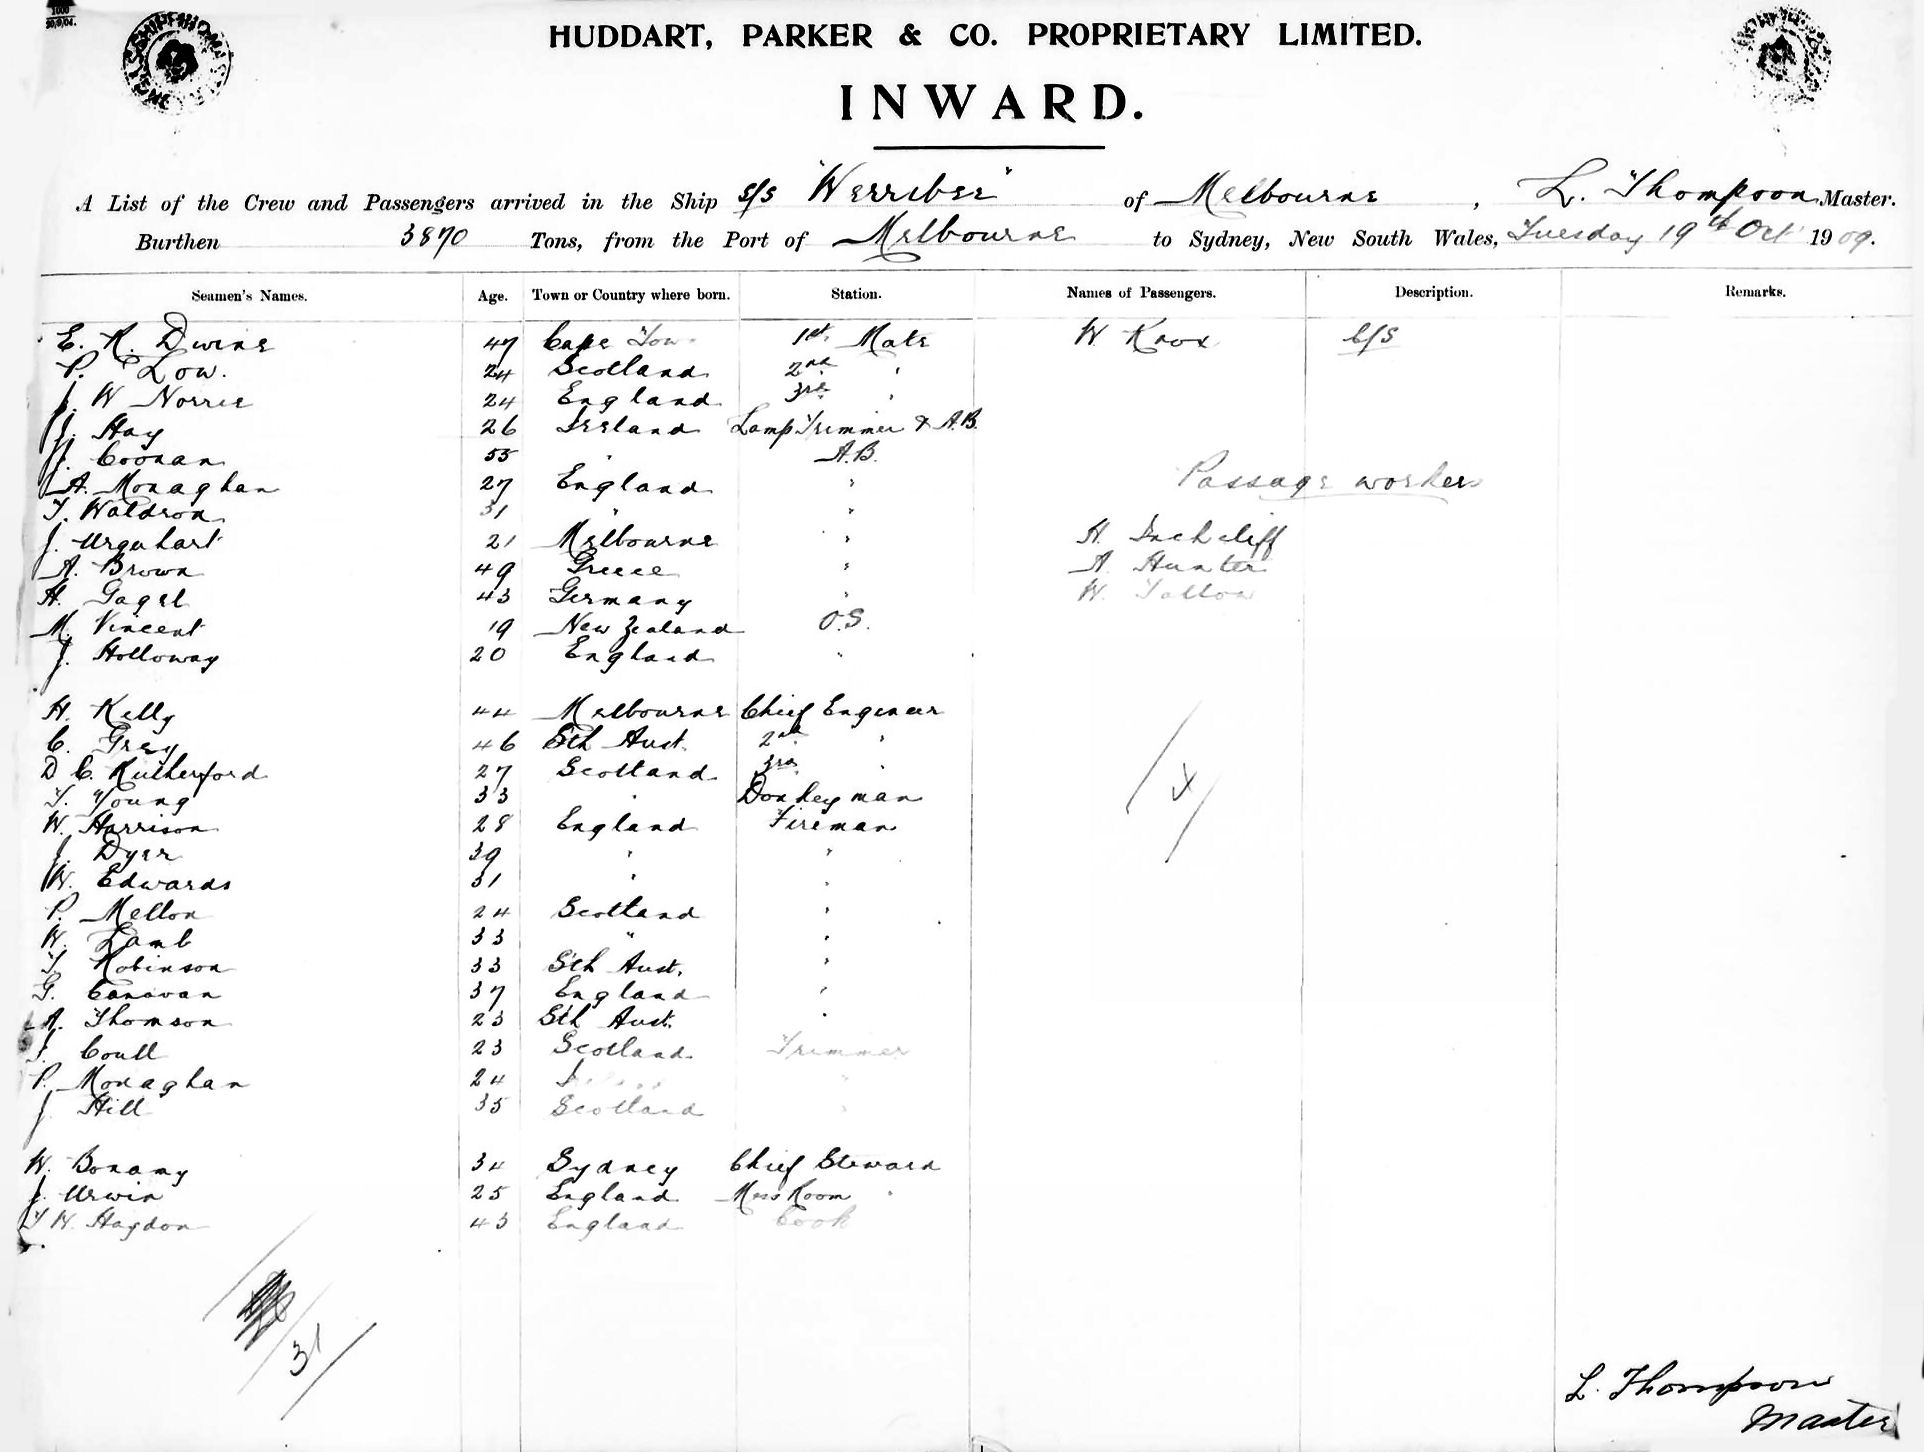 HUDDART, PARKER & CO. PROPRIETARY LIMITED.
INWARD.
A List of the Crew and Passengers arrived in the Ship S/S "Werribee" of Melbourne, L. Thompson Master.
Burthen 3870 Tons, from the Port of Melbourne to Sydney, New South Wales, Tuesday 19th Oct 1909.
Seamen's Names. Age. Town or Country where born. Station. Names of Passengers. Description. Remarks.
E. R. Dwine 47 Cape Tow 1st Mate W. Knox C/S
P. Low. 24 Scotland 2nd "
J. W Norrie 24 England 3rd "
J. Hay 26 Ireland Lamp Trimmer & A.B.
J. Coonan 55 " A.B.
A. Monaghan 27 England " Passage workers
T. Waldron 31 " "
J. Urquhart 21 Melbourne " H. Inchcliff
A. Brown 49 Greece " A. Hunter
H. Gagel 43 Germany " W. Tallow
M. Vincent 19 New Zealand O.S.
J. Holloway 20 England "
H. Kelly 44 Melbourne Chief Engineer
C. Grey 46 Sth Aust. 2nd "
D C. Rutherford 27 Scotland 3rd "
T. Young 33 " Donkeyman
W. Harrison 28 England Fireman
J. Dyer 39 " "
W. Edwards 31 " "
P. Mellon 24 Scotland "
W. Lamb 33 " "
T. Robinson 33 Sth Aust. "
G. Canavan 37 England "
A. Thomson 23 Sth Aust. "
J. Coull 23 Scotland Trimmer
P. Monaghan 24 "
J. Hill 35 Scotland "
W. Bonamy 34 Sydney Chief Steward
J. Urwin 25 England Mess Room "
T W. Haydon 43 England Cook
31
L. Thompson
Master